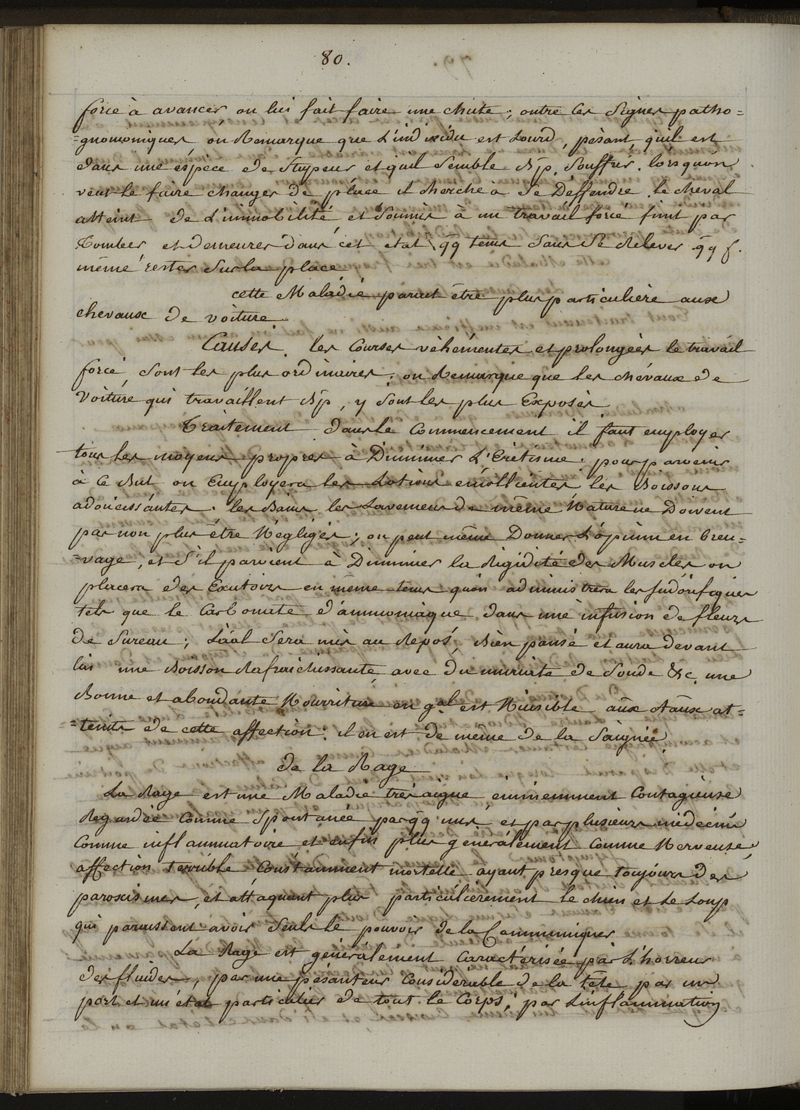 80.
force à avancer, on lui fait faire une chute; outre ces signes patho=
=gnomoniques, on Remarque que L'individu est Lourd, pésant, qu'il est
dans une espèce de Stupeur et qu'il Semble Bp. Souffrir. lorsqu'on
veut le faire changer de place il cherche à Se Deffendre. le cheval
atteint de L'immobilité, et Soumis à un travail forcé finit par
Tomber et demeurer dans cet état qq tems Sans Se Relever qq f.
même rester Sur la place
cette Maladie parait être plus particulière aux
chevaux de voiture.
Causes. les Courses vèhémentes et prolongées le travail
forcé Sont les plus ordinaires, on Remarque que les chévaux de
Voiture qui travaillent Bp, y Sont les plus Exposés
Traitement. Dans le Commencement il faut employer
tous les moyens propres à Diminuer L'Erétisme; pour parvenir
à ce But on Employera les Lotions émollientes les Boissons
adoucissantes. les Bains, les Lavemens de même Nature ne Doivent
pas non plus être Négligés; on peut même Donner L'opium en breu=
=vage, et S'il parvient à Diminuer la Rigidité des Muscles on
placera des Exutoires en même tems qu'on administrera les Sudorifiques
tels que le Carbonate d'ammoniaque dans une infusion de fleurs
de Sureau; L'aal Sera mis au Repos, Bien pansé et aura devant
lui une Boisson Rafraichissante avec du muriate de Soude &c. une
Bonne et abondante Nourriture en gal est Nuisible aux aaux at=
=teints de cette affection; il en est de même de la Saignée
de la Rage
La Rage est une Maladie trés aigue, éminemment Contagieuse
Regardée Comme Spontanée par qq uns, et par plusieurs médecins
Comme inflammatoire et enfin plus generalement Comme Nerveuse,
affection terrible Constamment mortelle ayant presque toujours des
paroxismes, et attaquant plus particulièrement le chien et Le Loup
qui paraissent avoir Seuls le pouvoir de la Communiquer
La Rage est généralement Caractérisée par L'horreur
des fluides, par une pésanteur Considérable de la tête par un
port et un état particulier de tout le Corps, par L'inflammation